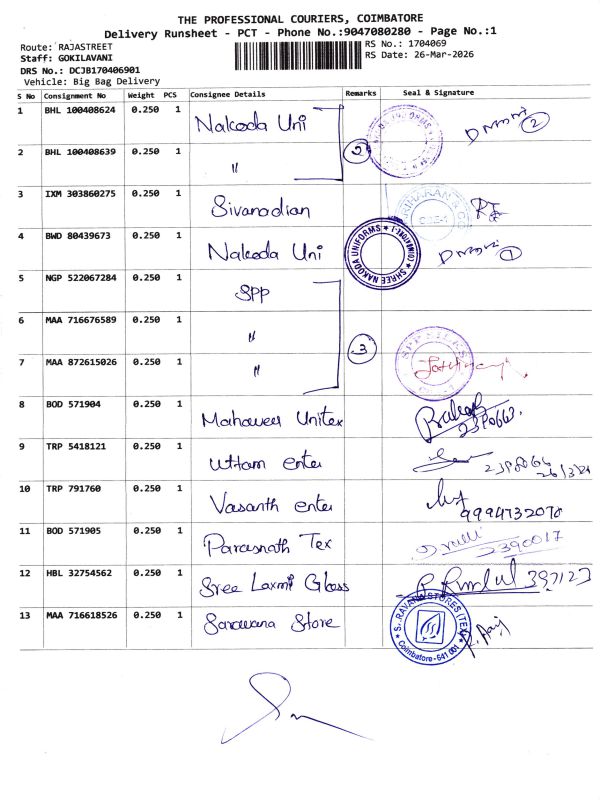 THE PROFESSIONAL COURIERS, COIMBATORE
Delivery Runsheet - PCT - Phone No.:9047080280 - Page No.:1
Route: RAJASTREET
RS No.: 1704069
Staff: GOKILAVANI
RS Date: 26-Mar-2026
DRS No.: DCJB170406901
Vehicle: Big Bag Delivery
S No Consignment No Weight PCS Consignee Details Remarks Seal & Signature
1 BHL 100408624 0.250 1 Nakoda Uni 2
2 BHL 100408639 0.250 1 "
2
3 IXM 303860275 0.250 1 Sivanadian
4 BWD 80439673 0.250 1 Nakoda Uni ★ SHREE NAKODA UNIFORMS ★ 1
5 NGP 522067284 0.250 1 SPP
6 MAA 716676589 0.250 1 "
3
7 MAA 872615026 0.250 1 "
8 BOD 571904 0.250 1 Mahaveer Unitex
9 TRP 5418121 0.250 1 Uttam enter
10 TRP 791760 0.250 1 Vasanth enter
9994732078
11 BOD 571905 0.250 1 Parasnath Tex 2390017
12 HBL 32754562 0.250 1 Sree Laxmi Glass
13 MAA 716618526 0.250 1 Sarawana Store
Coimbatore-641 001